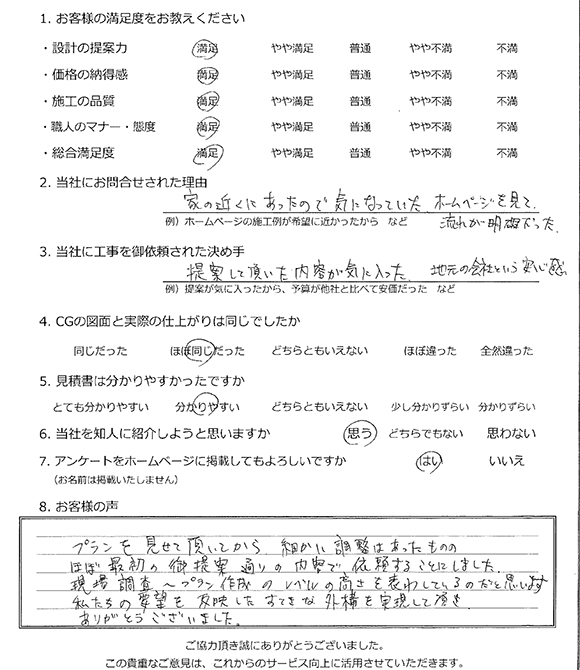 1. お客様の満足度をお教えください
・設計の提案力 満足 やや満足 普通 やや不満 不満
・価格の納得感 満足 やや満足 普通 やや不満 不満
・施工の品質 満足 やや満足 普通 やや不満 不満
・職人のマナー・態度 満足 やや満足 普通 やや不満 不満
・総合満足度 満足 やや満足 普通 やや不満 不満
2. 当社にお問合せされた理由
家の近くにあったので気になっていた ホームページを見て、
例）ホームページの施工例が希望に近かったから など 流れが明確だった
3. 当社に工事を御依頼された決め手
提案して頂いた内容が気に入った 地元の会社という安心感
例）提案が気に入ったから、予算が他社と比べて安価だった など
4. CGの図面と実際の仕上がりは同じでしたか
同じだった ほぼ同じだった どちらともいえない ほぼ違った 全然違った
5. 見積書は分かりやすかったですか
とても分かりやすい 分かりやすい どちらともいえない 少し分かりずらい 分かりずらい
6. 当社を知人に紹介しようと思いますか 思う どちらでもない 思わない
7. アンケートをホームページに掲載してもよろしいですか はい いいえ
（お名前は掲載いたしません）
8. お客様の声
プランを見せて頂いてから 細かい調整はあったものの
ほぼ最初の御提案通りの内容で依頼することにしました.
現場調査〜プラン作成のレベルの高さを表わしているのだと思います
私たちの要望を反映したすてきな外構を実現して頂き
ありがとうございました.
ご協力頂き誠にありがとうございました。
この貴重なご意見は、これからのサービス向上に活用させていただきます。